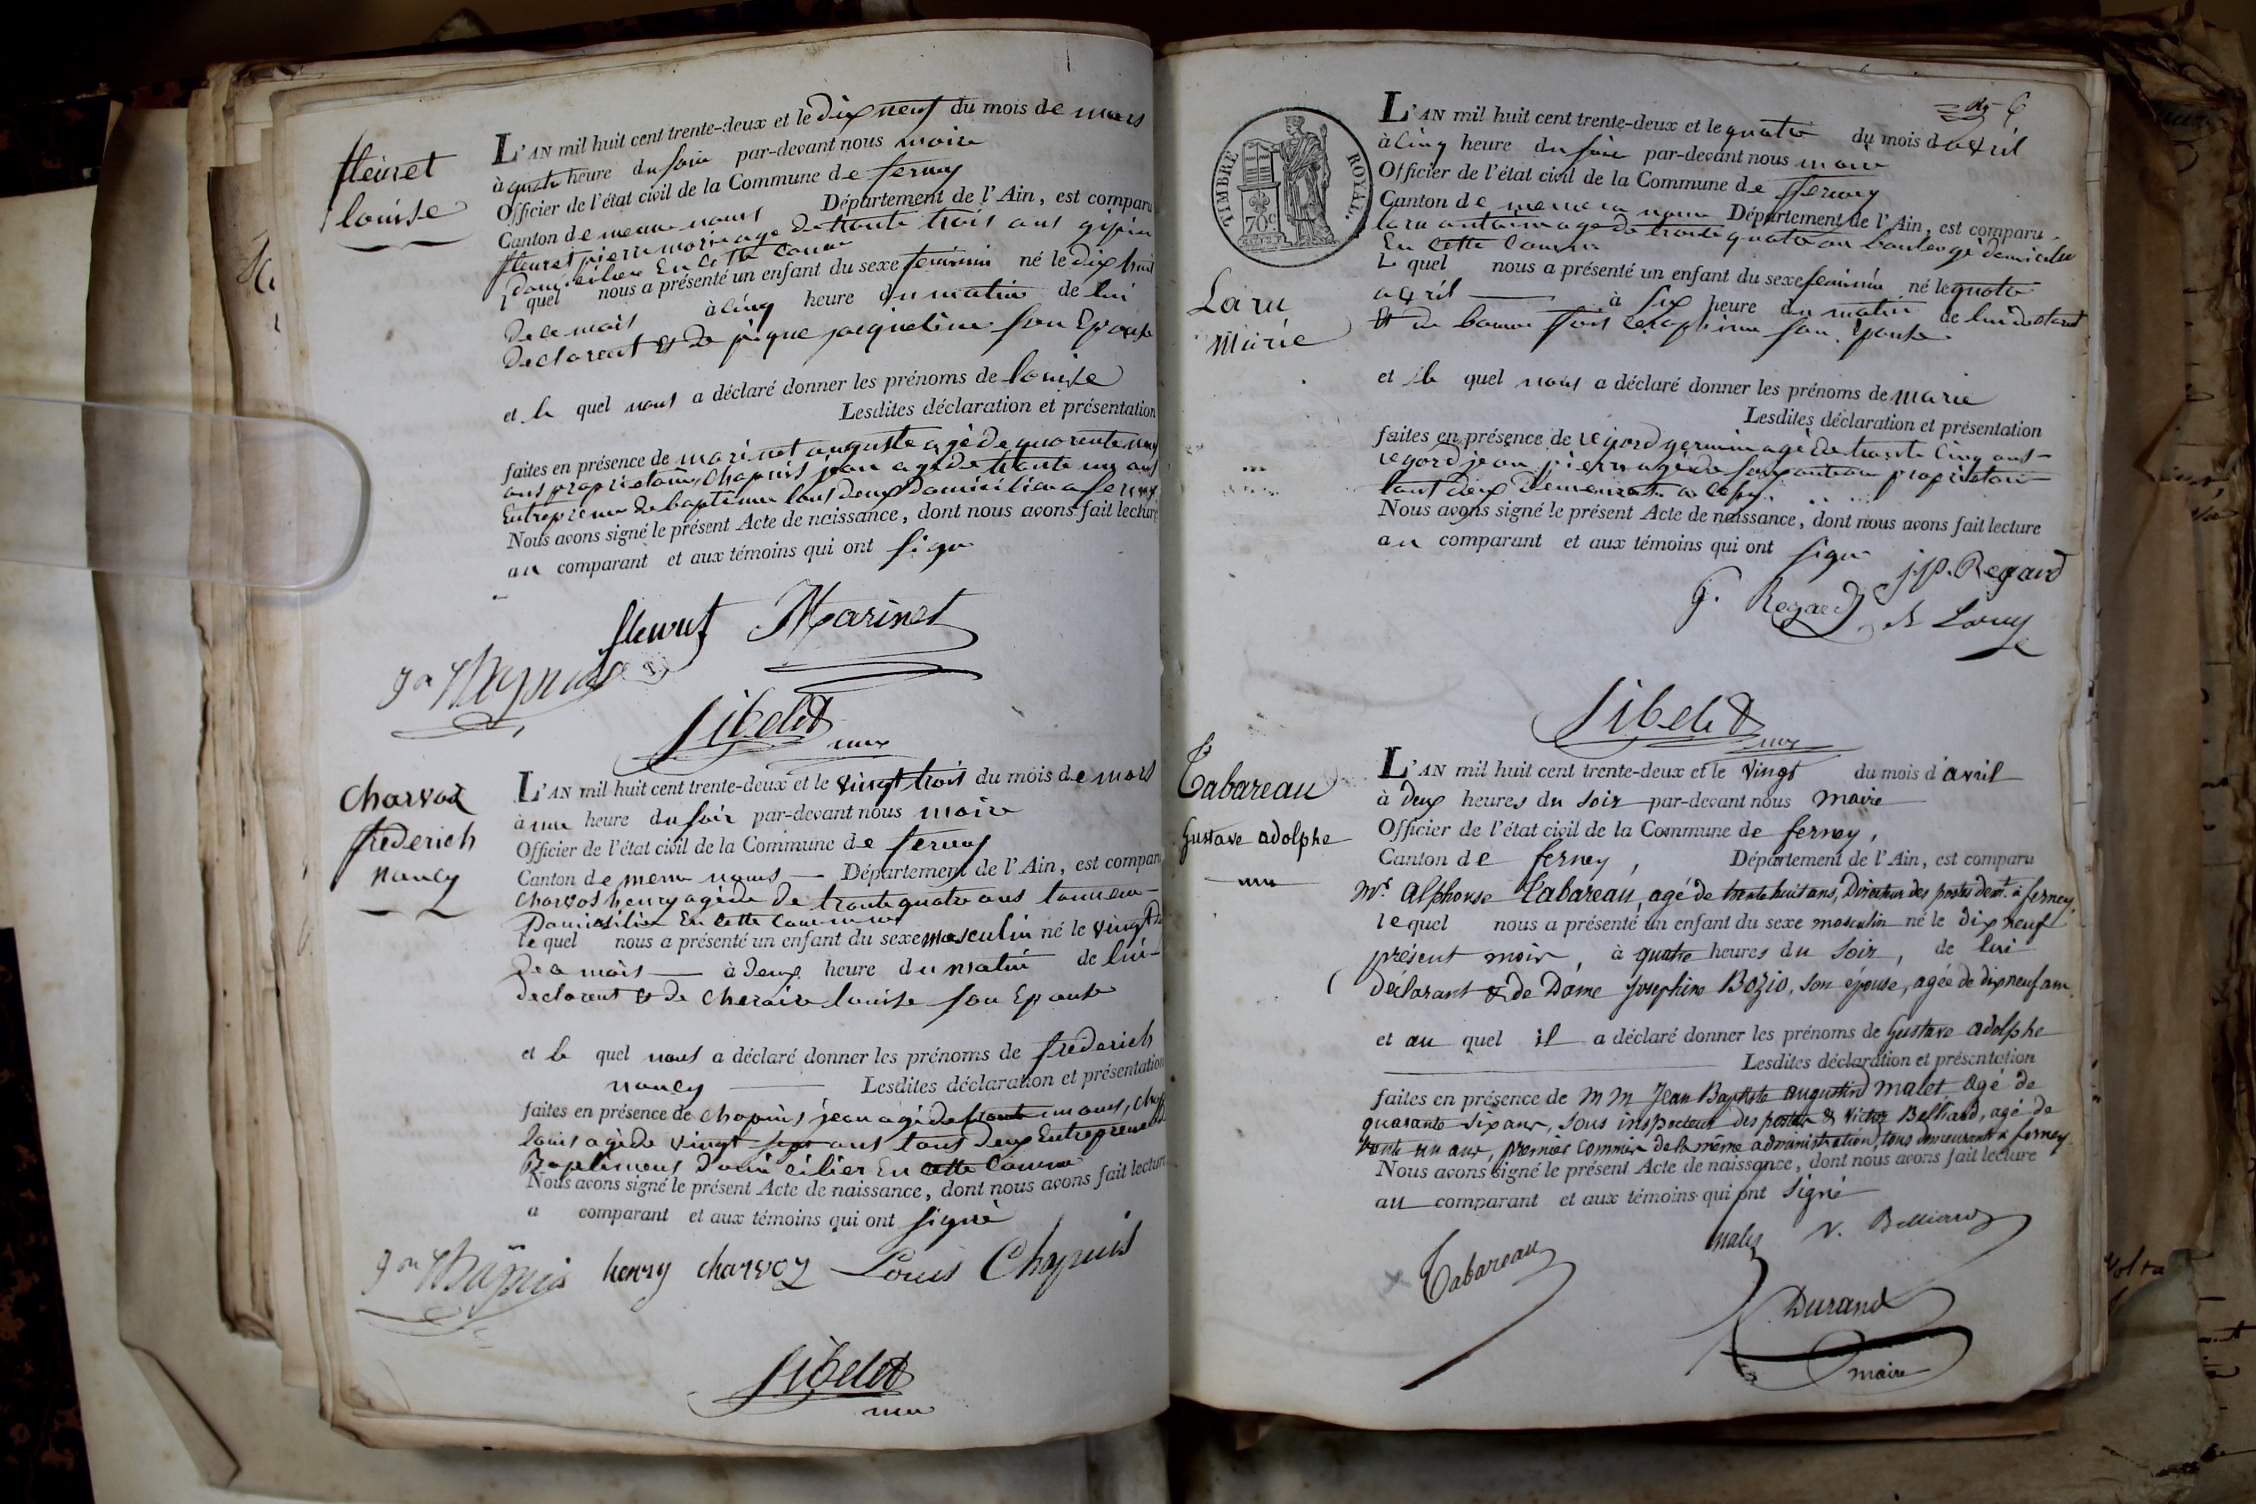 fleuret
louise
L'AN mil huit cent trente-deux et le dix neuf du mois de mars
à quatre heure du soir par-devant nous maire
Officier de l'état civil de la Commune de ferney
Canton de meme nours Département de l'Ain, est comparu
fleuret pierre mori age de trente trois ans gipier
domicilier En cette Comune
l quel nous a présenté un enfant du sexe feminin né le dix huit
de ce mois à cinq heure du matin de lui
declarent et de jaqueline son Epouse
et le quel nous a déclaré donner les prénoms de louise
Lesdites déclaration et présentation
faites en présence de marinet auguste agé de quarente
ans propriétaire, Chapuis jean agé de trante un ans
Entrepreneur de baptimen tous deux domicilier a ferney
Nous avons signé le présent Acte de naissance, dont nous avons fait lecture
au comparant et aux témoins qui ont signe
fleuret Marinet
Jn Chapuis
Sibelet
Charvoz
frederich
nancy
L'AN mil huit cent trente-deux et le vingt trois du mois de mars
à une heure du soir par-devant nous maire
Officier de l'état civil de la Commune de ferney
Canton de meme nours Département de l'Ain, est comparu
Charvos henry agé de de trante quatre ans
Domicilier En cette Commune
le quel nous a présenté un enfant du sexe masculin né le vingt
de ce mois à deux heure du matin de lui
declarent et de louise son Epouse
et le quel nous a déclaré donner les prénoms de frederich
nancy Lesdites déclaration et présentation
faites en présence de Chapuis jean agé de trante un ans,
louis agé de vingt sept ans tous deux Entrepreneur
Baptimens domicilier En cette Comune
Nous avons signé le présent Acte de naissance, dont nous avons fait lecture
a comparant et aux témoins qui ont signé
Jn Chapuis henry charvoz Louis Chapuis
Sibelet
TIMBRE ROYAL.
70 c
L'AN mil huit cent trente-deux et le quatre du mois d'avril
à cinq heure du soir par-devant nous maire
Officier de l'état civil de la Commune de ferney
Canton de meme nours Département de l'Ain, est comparu
laru antoine agé de trante quatre an boulengé domicilier
En cette Comune
L quel nous a présenté un enfant du sexe feminin né le quatre
avril à six heure du matin de lui declarent
Et de son Epouse
Laru
Marie
et le quel nous a déclaré donner les prénoms de marie
Lesdites déclaration et présentation
faites en présence de regard germin agé de trante cinq ans
regard jean pierre agé de propriétaire
tous deux demeurent a
Nous avons signé le présent Acte de naissance, dont nous avons fait lecture
au comparant et aux témoins qui ont signe
J.P. Regard
G. Regard
Sibelet
Tabareau
Gustave adolphe
L'AN mil huit cent trente-deux et le vingt du mois d'avril
à deux heures du soir par-devant nous maire
Officier de l'état civil de la Commune de ferney,
Canton de ferney, Département de l'Ain, est comparu
Mr. Alphonse Tabareau, agé de trente huit ans, Directeur des postes demt. à ferney,
lequel nous a présenté un enfant du sexe masculin né le dix neuf
présent mois, à quatre heures du soir, de lui
déclarant & de Dame Josephine Bozio, son épouse, agée de dix neuf ans
et au quel il a déclaré donner les prénoms de Gustave adolphe
Lesdites déclaration et présentation
faites en présence de MM Jean Baptiste augustin malet agé de
quarante six ans, sous inspecteur des postes & Victor Belliard, agé de
trente un ans, premier commis de la même administration, tous demeurants à ferney.
Nous avons signé le présent Acte de naissance, dont nous avons fait lecture
au comparant et aux témoins qui ont signé
Tabareau malet V. Belliard
Durand
maire